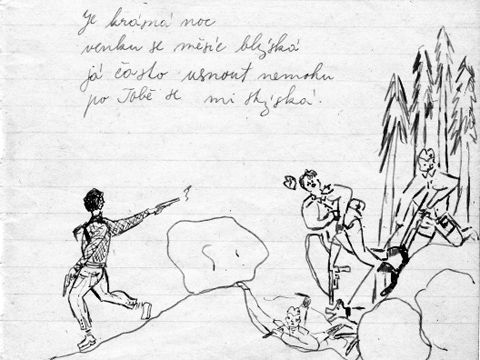 Je krásná noc
venku se měsíc blýská
já často usnout nemohu
po Tobě se mi stýská.